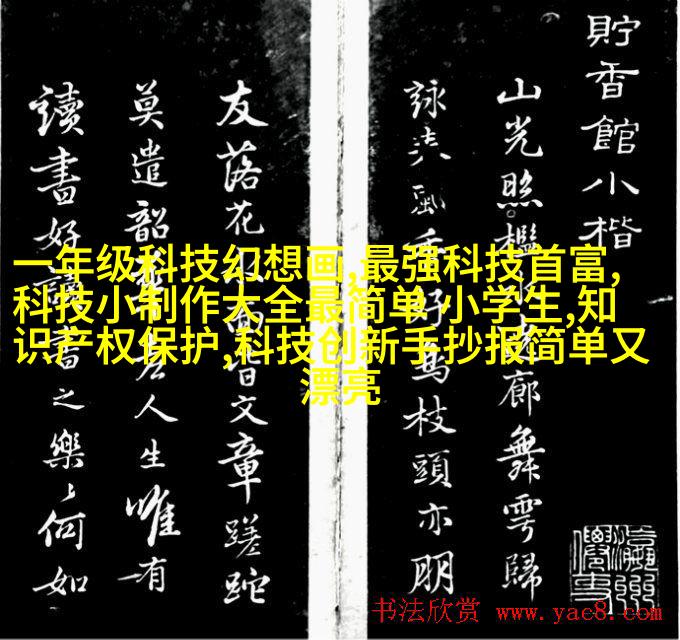 貯香館小楷
山光照檻水廊舞雩歸
詠春風好鳥枝頭亦朋
友落花水面皆文章蹉跎
莫遣韶光老人生唯有
讀書好讀書之樂〻何如
一年级科技幻想画,最强科技首富,
科技小制作大全最简单 小学生,知
识产权保护,科技创新手抄报简单又
漂亮
书法欣赏 www.yac8.com